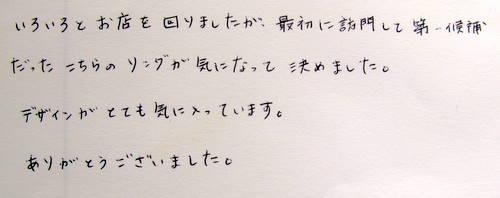 いろいろとお店を回りましたが、最初に訪問して第一候補
だったこちらのリングが気になって決めました。
デザインがとても気に入っています。
ありがとうございました。